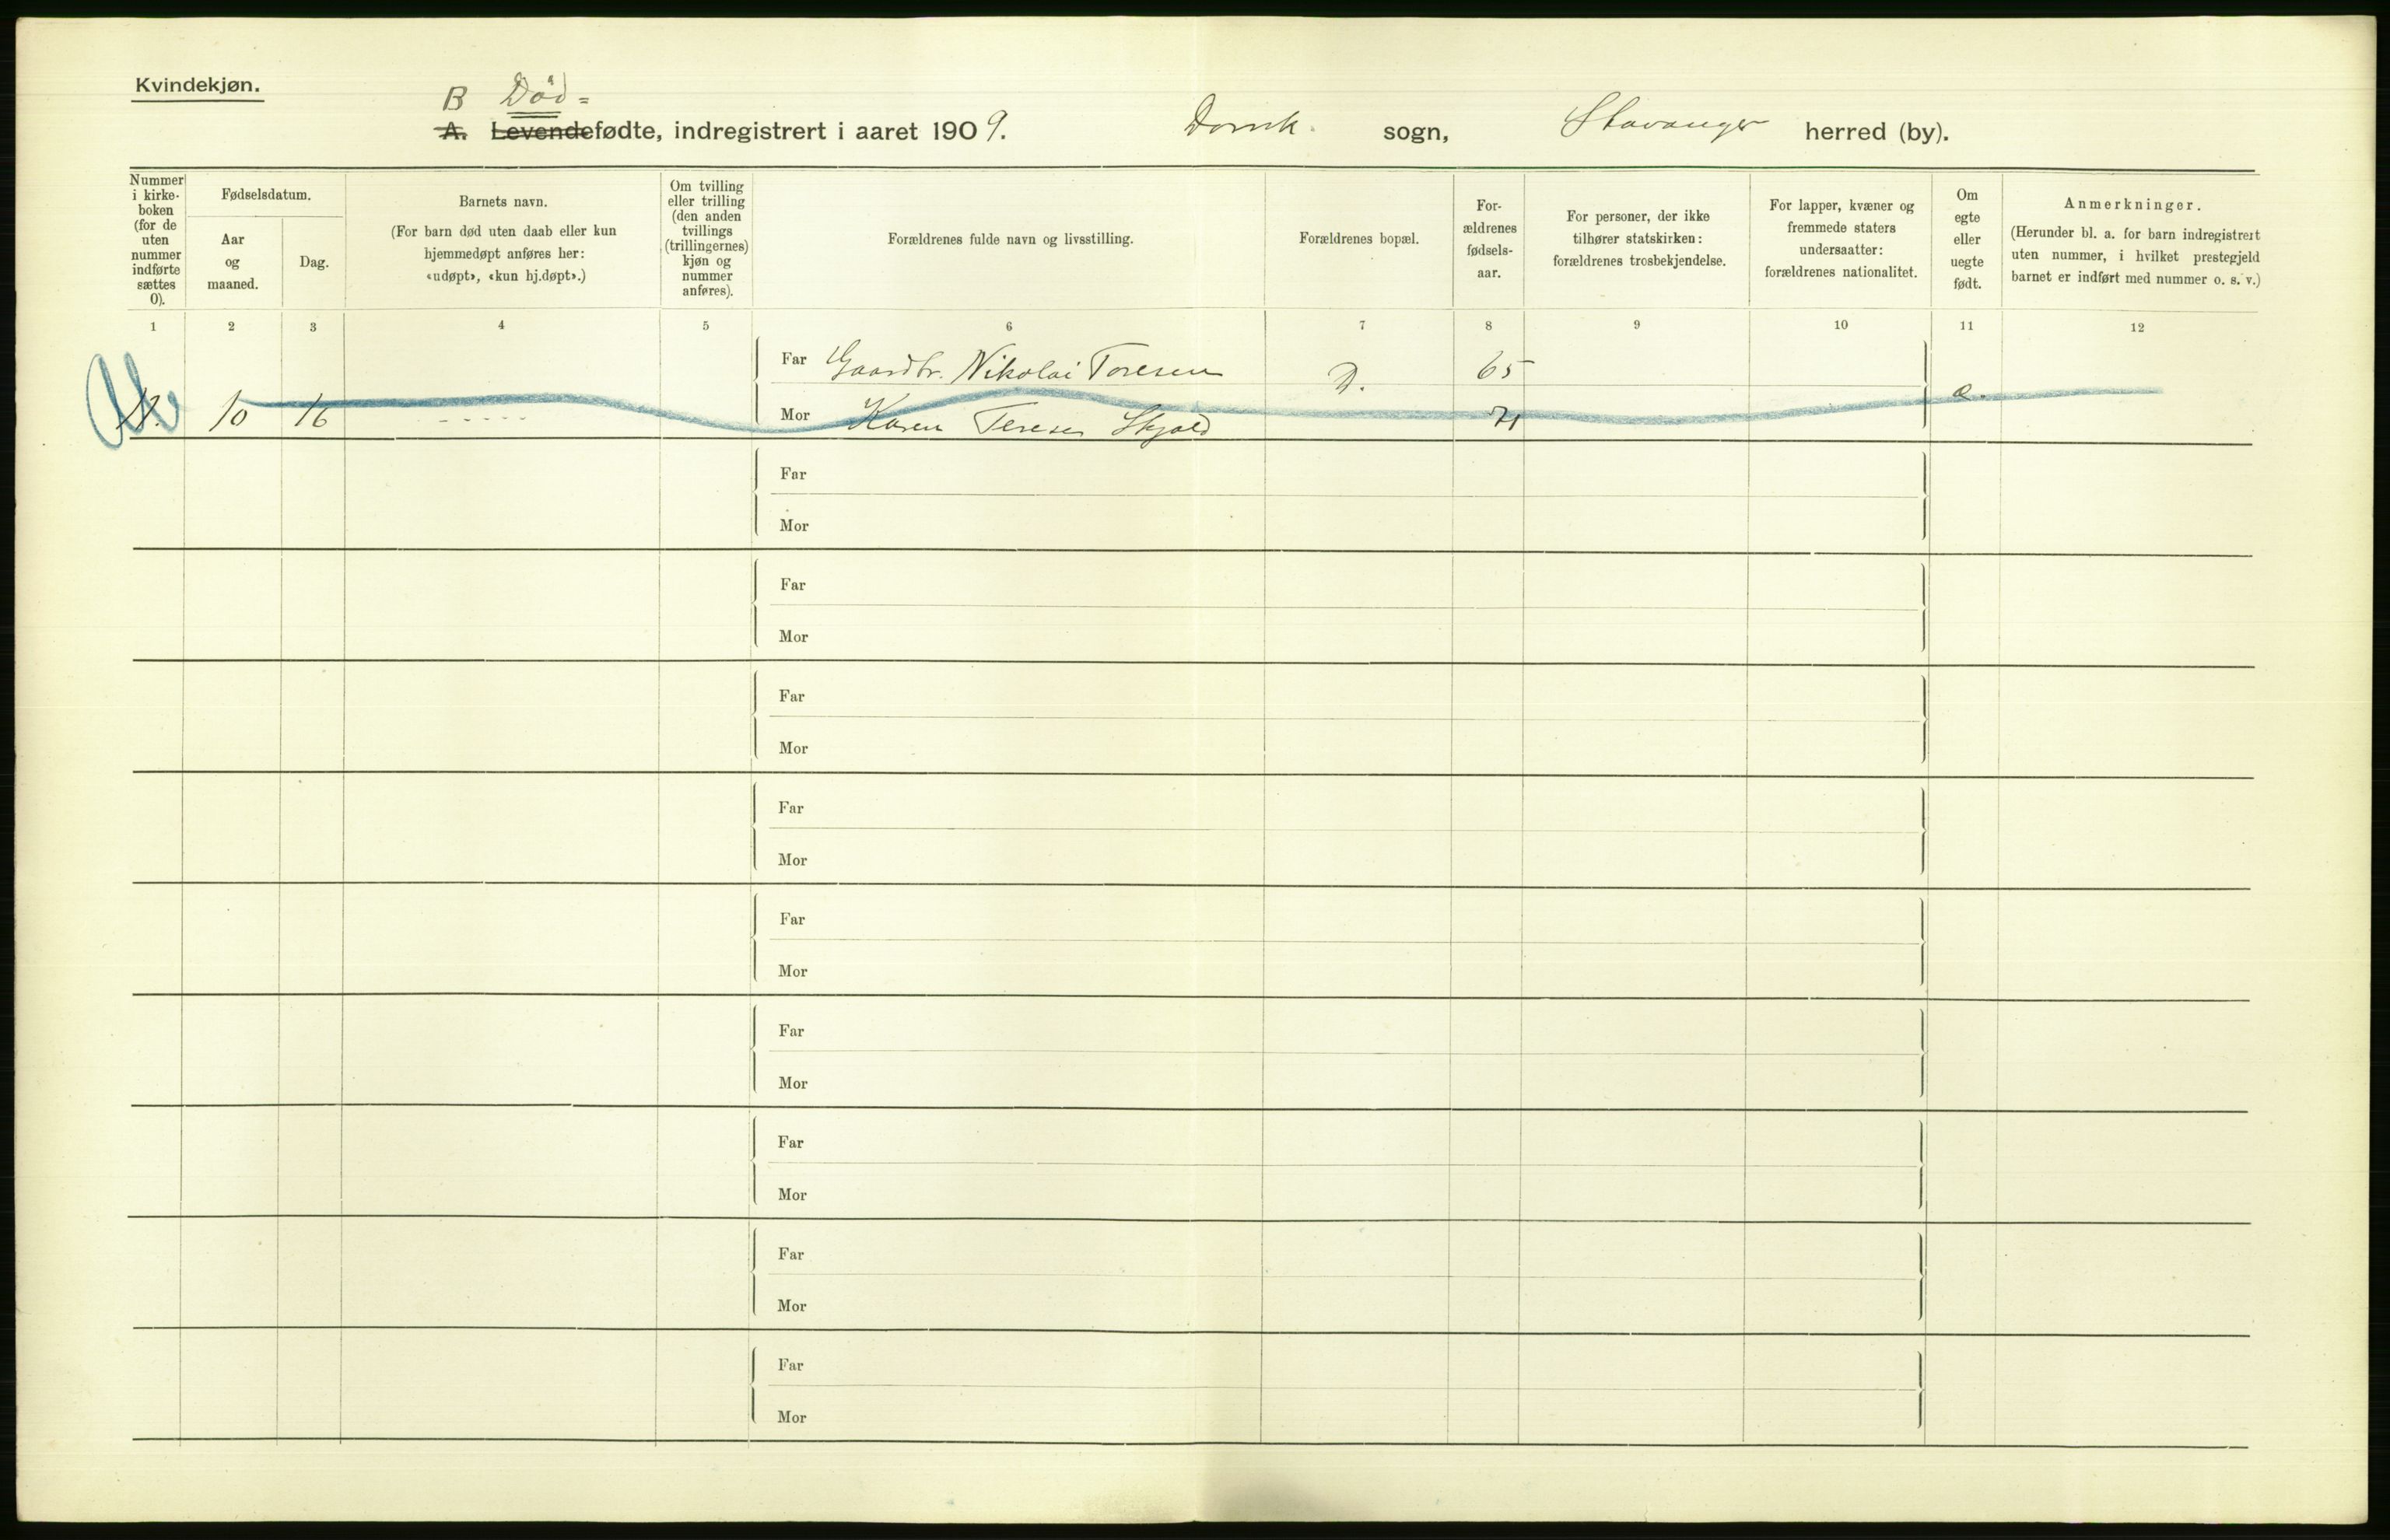 Kvindekjøn.
B Død=
A. Levendefødte, indregistrert i aaret 1909. Domk. sogn, Stavanger herred (by).
Nummer i kirke-boken (for de uten nummer indførte sættes 0).
Fødselsdatum.
Aar og maaned.
Dag.
Barnets navn.
(For barn død uten daab eller kun
hjemmedøpt anføres her:
«udøpt», «kun hj.døpt».)
Om tvilling
eller trilling
(den anden
tvillings
(trillingernes)
kjøn og
nummer
anføres).
Forældrenes fulde navn og livsstilling.
Forældrenes bopæl.
For-
ældrenes
fødsels-
aar.
For personer, der ikke
tilhører statskirken:
forældrenes trosbekjendelse.
For lapper, kvæner og
fremmede staters
undersaatter:
forældrenes nationalitet.
Om
egte
eller
uegte
født.
Anmerkninger.
(Herunder bl. a. for barn indregistrert
uten nummer, i hvilket prestegjeld
barnet er indført med nummer o. s. v.)
1 2 3 4 5 6 7 8 9 10 11 12
Far Gaardbr. Nikolai Toresen D. 65
10 16 - - - - - Mor Karen Terese Skjold 71 e.
Far
Mor
Far
Mor
Far
Mor
Far
Mor
Far
Mor
Far
Mor
Far
Mor
Far
Mor
Far
Mor